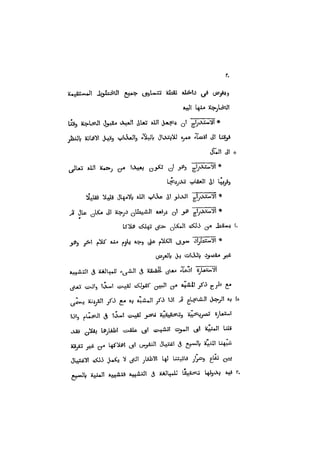 ٢٠
ويفرض فى داخله نقطة تتساوى جميع الخطوط المستقيمة
الخارجة منها اليه
* الاستدراج ان يجعل الله تعالى العبد مقبول الحاجة وقتًا
فوقتا الى اقصاء عمره للابتدال بالبلاء والعذاب وقيل الاهانة بالنظر
٥ الى المآل
* الاستدراج هو ان تكون بعيدا من رحمة الله تعالى
وقريبا الى العقاب تدريجًا
* الاستدراج الدنو الى عذاب الله بالامهال قليلا قليلا
* الاستدراج هو ان يرفعه الشيطان درجة الى مكان عال ثم
١٠ يسقط من ذلك المكان حتى يهلك هلاكا
* الاستطراد سوق الكلام على وجه يلزم منه كلام اخر وهو
غير مقصود بالذات بل بالعرض
الاستعارة ادّعاء معنى الحقيقة فى الشىء للمبالغة فى التشبيه
مع طرح ذكر المشبه من البين كقولك لقيت اسدًا وانت تعنى
١٥ به الرجل الشجاع ثم اذا ذكر المشبه به مع ذكر القرينة يسمّى
استعارة تصريحيّة وتحقيقيّة نحو لقيت اسدًا فى الحمّام واذا
قلنا المنيّة اى الموت انشبت اى علقت اظفارها بفلان فقد
شبّهنا المنيّة بالسبع فى اغتيال النفوس اى اهلاكها من غير تفرقة
بين نفّاع وضرّار فاثبتنا لها الاظفار التى لا يكمل ذلك الاغتيال
٢٠ فيه بدونها تحقيقًا للمبالغة فى التشبيه فتشبيه المنية بالسبع